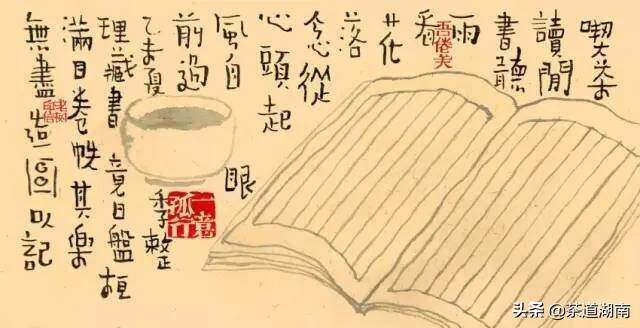 喫茶
讀閒
書聽
雨
看
花
落
念從
心頭起
風自
眼
前過
乙未夏
季整
理藏書 竟日盤桓
滿目卷帙其樂
無盡造圖以記
一意孤行
头条 @茶道湖南